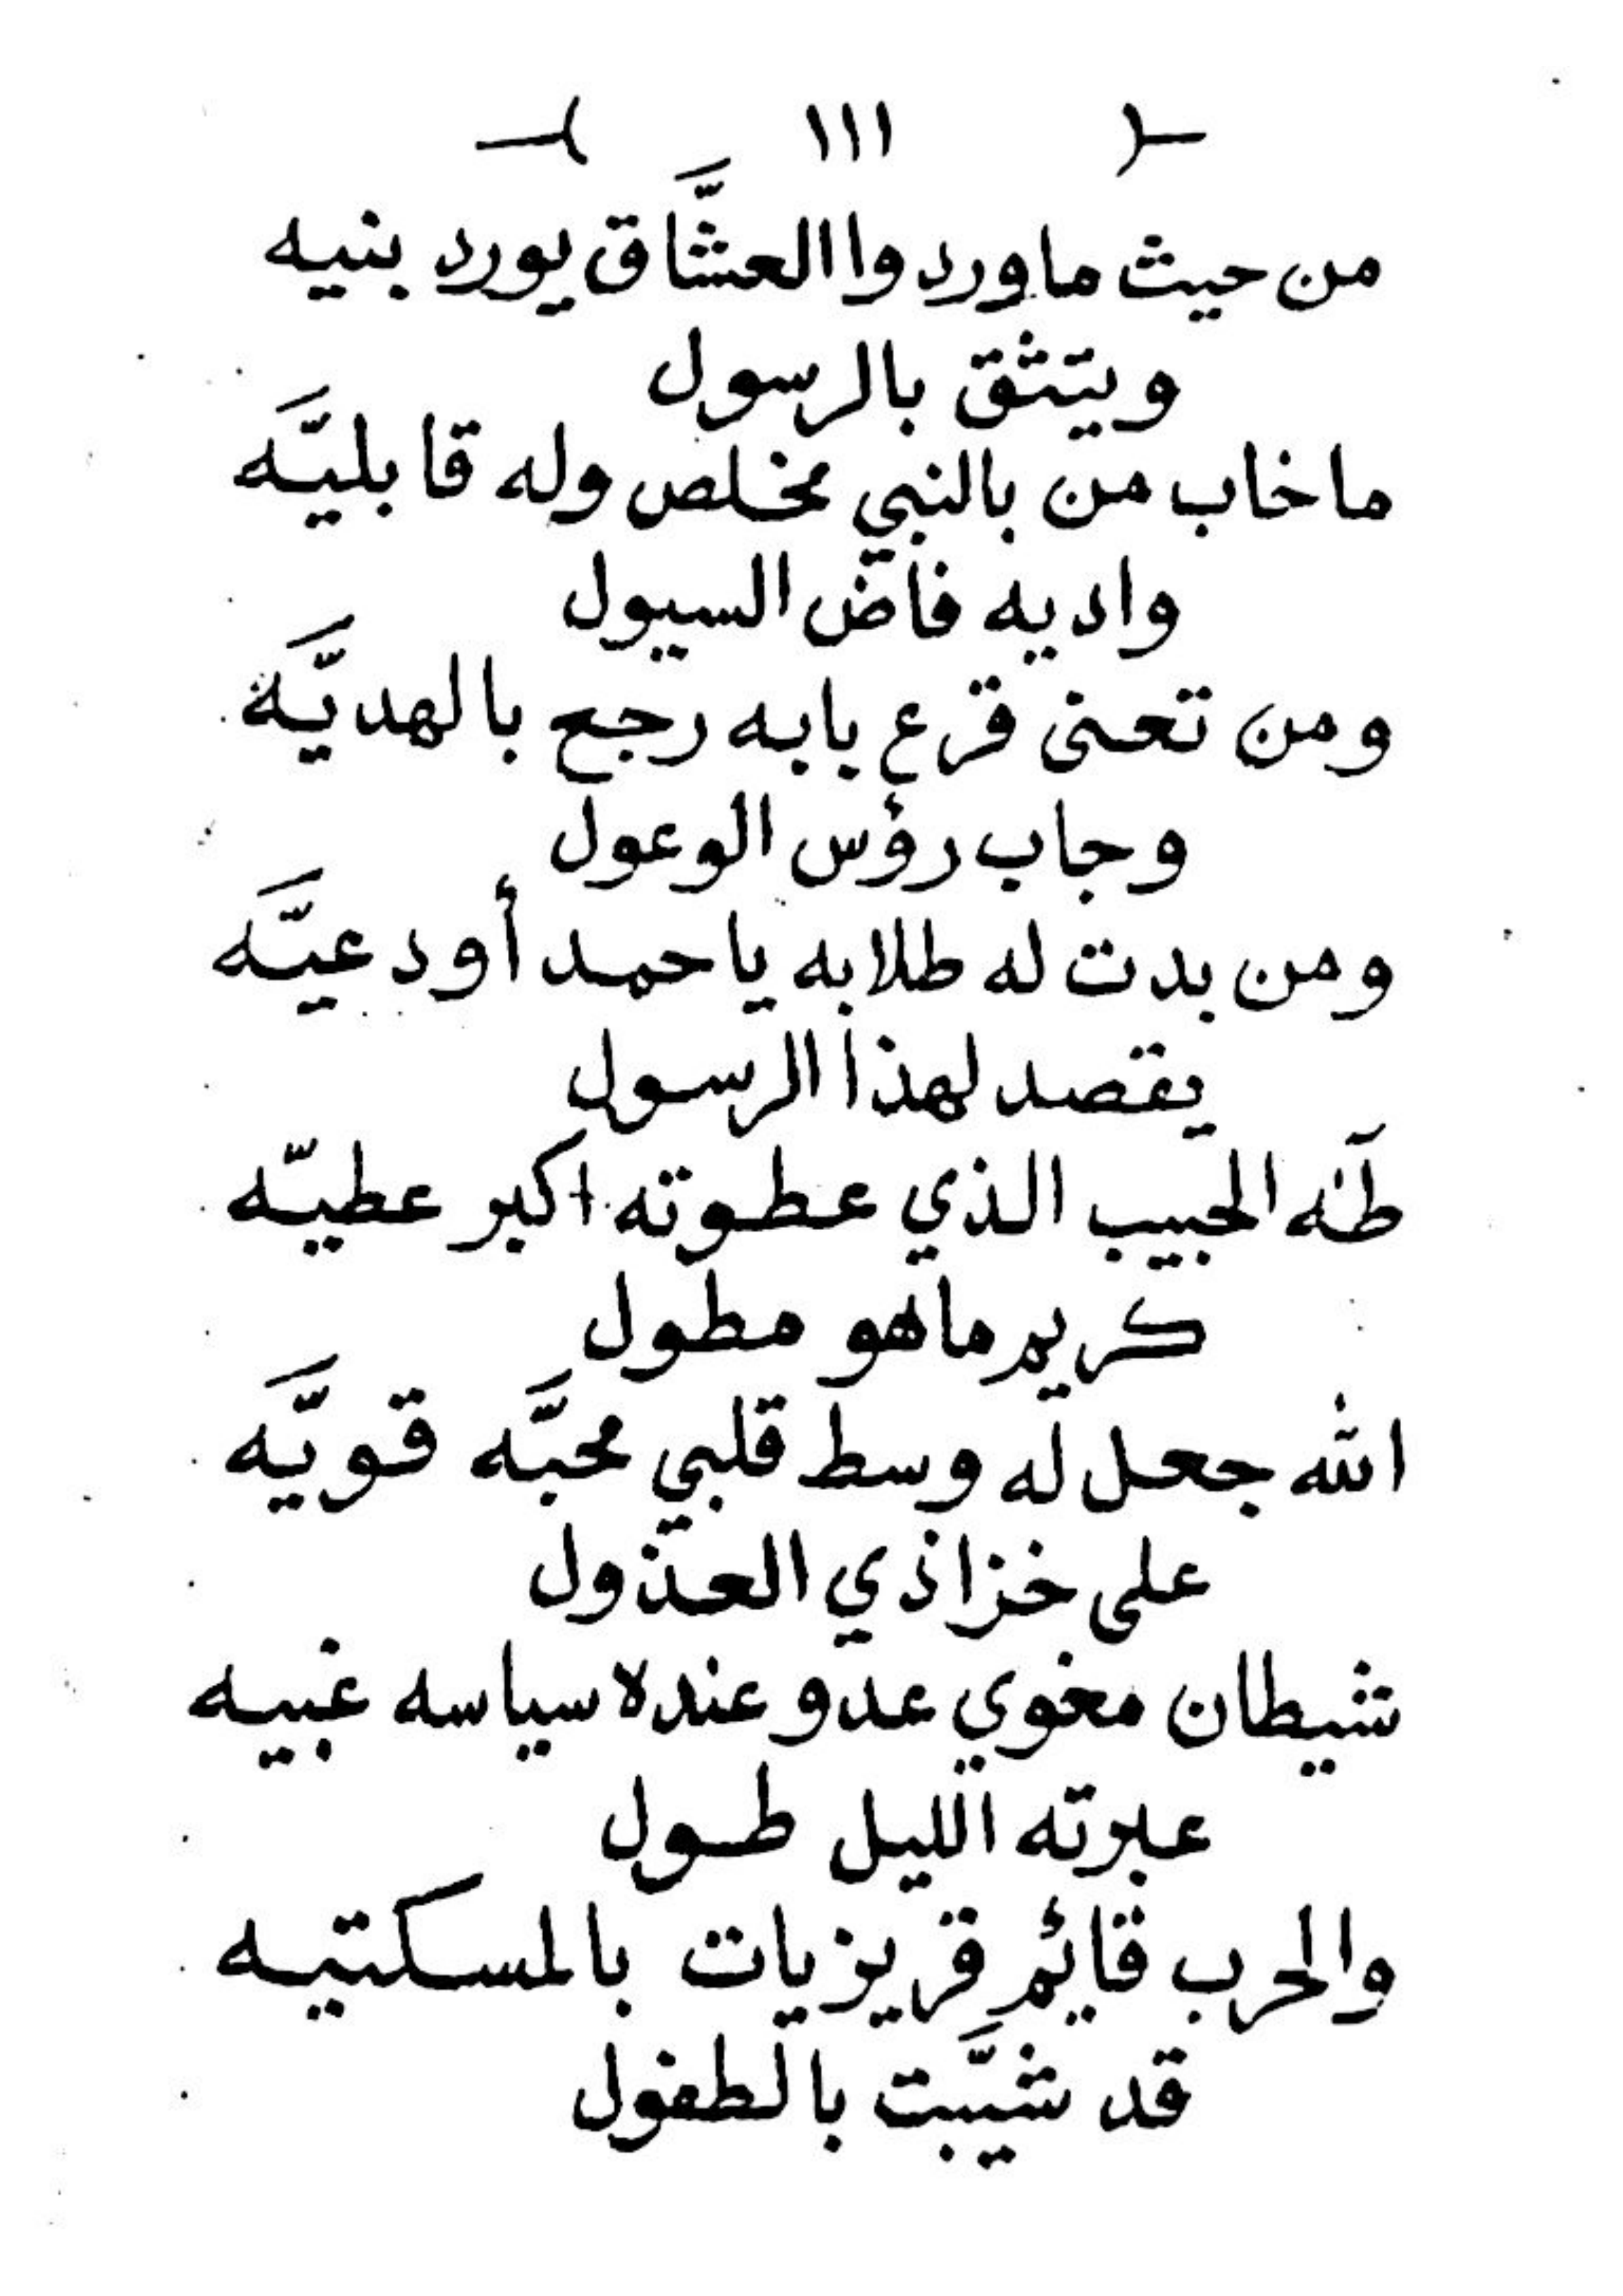 ١١١
من حيث ماوردوا العشَّاق يورد بنيه
ويتثق بالرسول
ماخاب من بالنبي مخلص وله قابليَّه
واديه فاض السيول
ومن تعنى قرع بابه رجع بالهديَّة
وجاب رؤس الوعول
ومن بدت له طلابه ياحمد أودعيَّه
يقصد لهذا الرسول
طَه الحبيب الذي عطوته اكبر عطيّه
كريم ماهو مطول
الله جعل له وسط قلبي محبَّه قويَّه
على خزاذي العذول
شيطان مغوي عدو عنده سياسه غبيه
عبرته الليل طول
والحرب قائم قريزيات بالمسكتيه
قد شيَّبت بالطفول